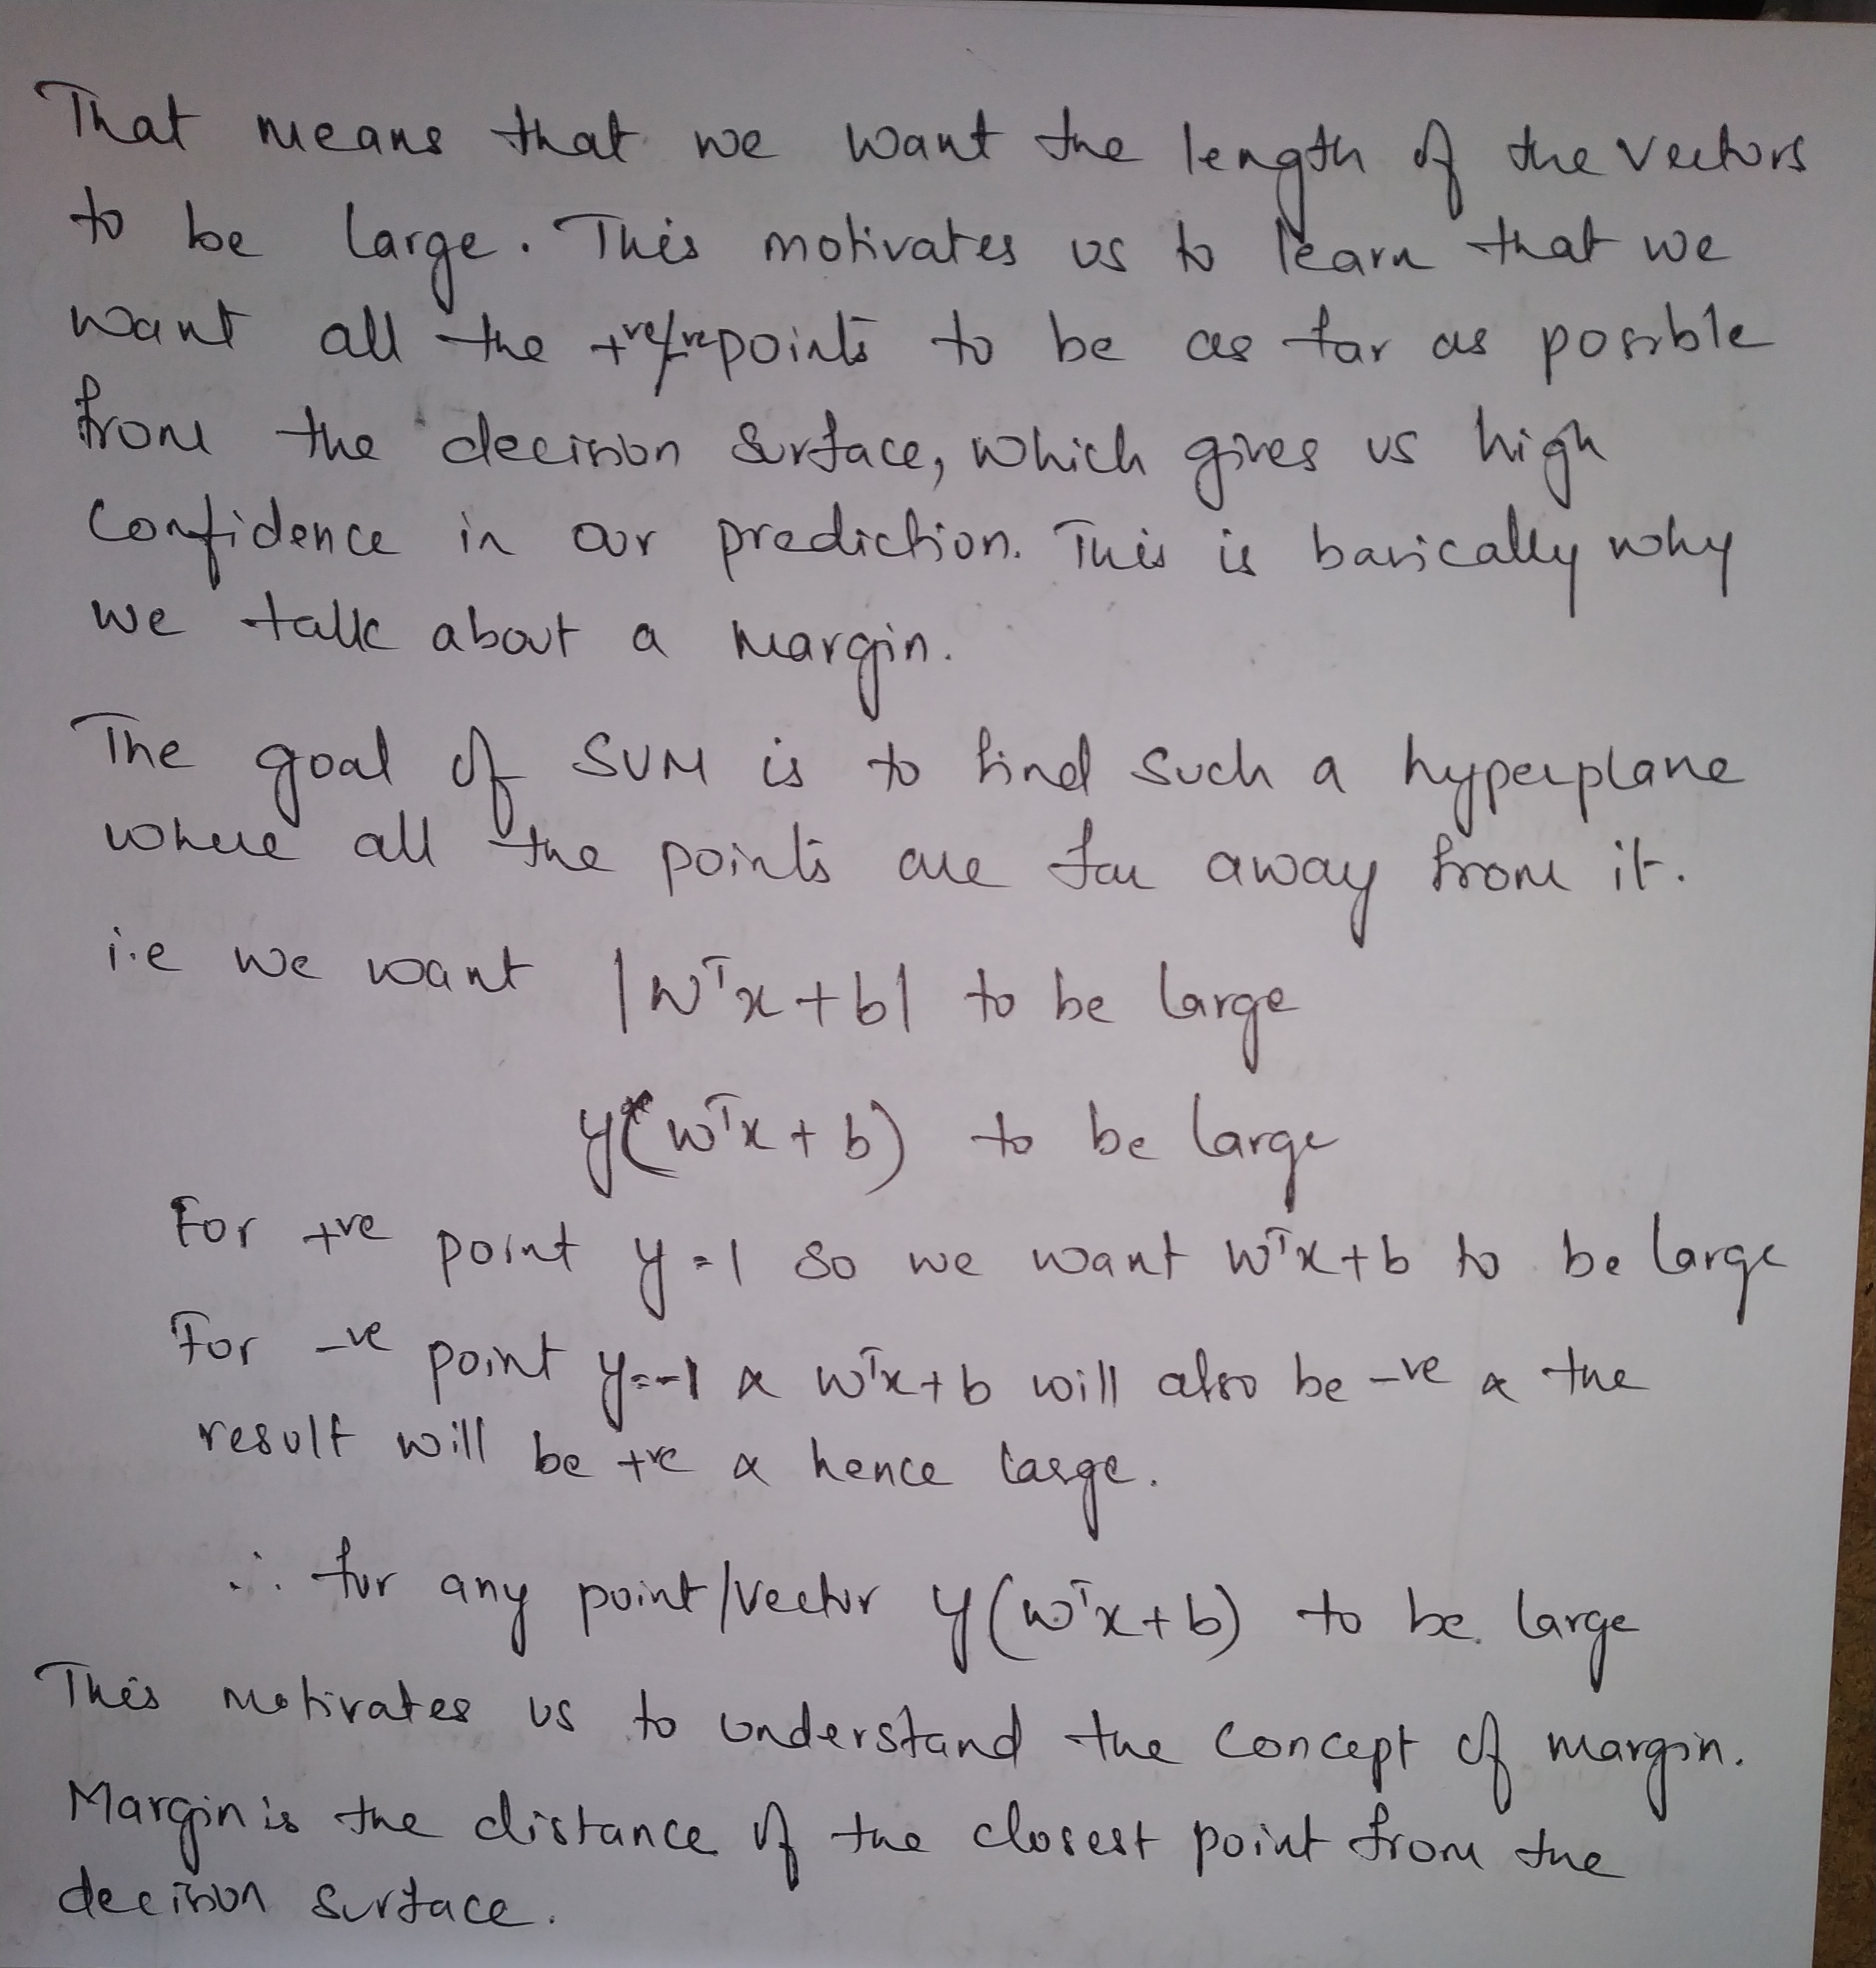 That means that we want the length of the vectors
to be large. This motivates us to learn that we
want all the +ve/-ve points to be as far as possible
from the decision surface, which gives us high
confidence in our prediction. This is basically why
we talk about a margin.
The goal of SVM is to find such a hyperplane
where all the points are far away from it.
i.e we want |wᵀx+b| to be large
y(wᵀx+b) to be large
For +ve point y=1 so we want wᵀx+b to be large
For -ve point y=-1 & wᵀx+b will also be -ve & the
result will be +ve & hence large.
∴ for any point/vector y(wᵀx+b) to be large
This motivates us to understand the concept of margin.
Margin is the distance of the closest point from the
decision surface.